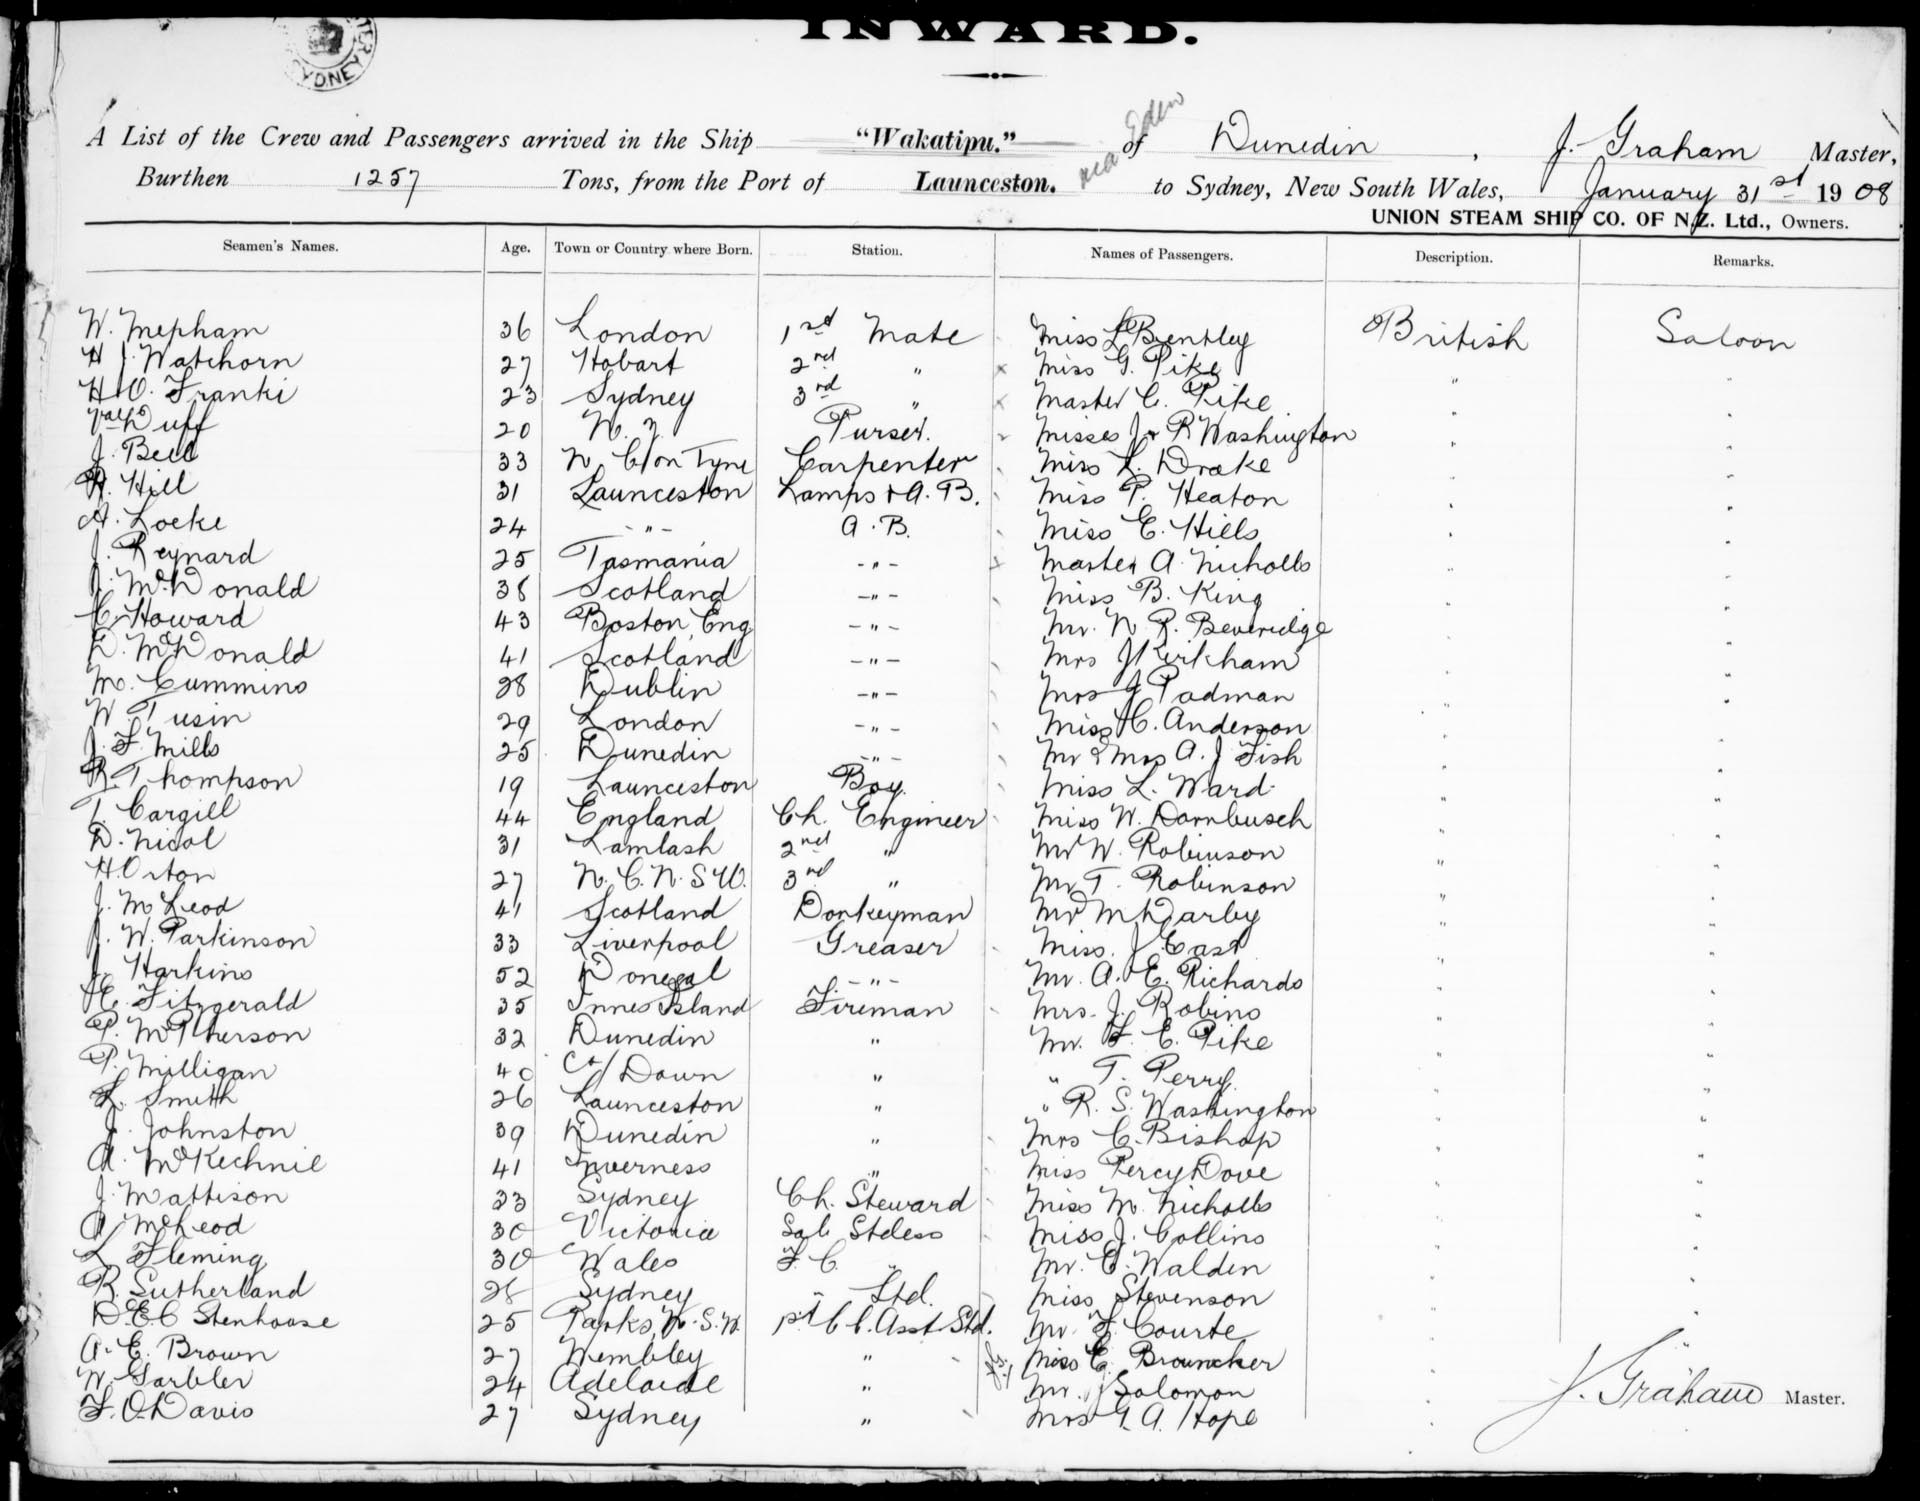 INWARD.
SYDNEY
A List of the Crew and Passengers arrived in the Ship "Wakatipu." of Dunedin, J. Graham Master,
via Eden
Burthen 1257 Tons, from the Port of Launceston. to Sydney, New South Wales, January 31st 1908
UNION STEAM SHIP CO. OF N.Z. Ltd., Owners.
Seamen's Names. Age. Town or Country where Born. Station. Names of Passengers. Description. Remarks.
W. Mepham 36 London 1st Mate Miss L Bentley British Saloon
H J. Watchorn 27 Hobart 2nd " Miss G. Pike " "
H. O. Franki 23 Sydney 3rd " Master C. Pike " "
Duff 20 N. Z. Purser. Misses J & R Washington " "
J. Bell 33 N. C/on Tyne Carpenter Miss L. Drake " "
R. Hill 31 Launceston Lamps & A. B. Miss P. Heaton " "
A. Locke 24 - " - A. B. Miss E. Hills " "
J. Reynard 25 Tasmania - " - Master A. Nicholls " "
J. McDonald 38 Scotland - " - Miss B. King " "
C. Howard 43 Boston, Eng - " - Mr. N. R. Beveridge " "
D. McDonald 41 Scotland - " - Mrs J Kirkham " "
M. Cummins 28 Dublin - " - Mrs J Padman " "
W. Tusin 29 London - " - Miss C. Anderson " "
J. F. Mills 25 Dunedin - " - Mr & Mrs A. J Fish " "
R. Thompson 19 Launceston Boy. Miss L. Ward " "
T. Cargill 44 England Ch. Engineer Miss W. Dornbusch " "
D. Nicol 31 Lamlash 2nd " Mr W. Robinson " "
H. Orton 27 N. C. N. S. W. 3rd " Mr T. Robinson " "
J. McLeod 41 Scotland Donkeyman Mr M Darby " "
J. W. Parkinson 33 Liverpool Greaser Miss. J East " "
J. Harkins 52 Donegal - " - Mr. A. E. Richards " "
E. Fitzgerald 35 Innes Island Fireman Mrs. J. Robins " "
P. McPherson 32 Dunedin " Mr. F. E. Pike " "
P. Milligan 40 Co/ Down " " T. Perry. " "
L. Smith 26 Launceston " " R. S. Washington " "
J. Johnston 39 Dunedin " Mrs C. Bishop " "
A. McKechnie 41 Inverness " Miss Percy Dove " "
J. Mattison 33 Sydney Ch. Steward Miss M. Nicholls " "
A McLeod 30 Victoria Sal. Stdess Miss J. Collins " "
L. Fleming 30 Wales F. C. " Mr. E. Walden " "
R. Sutherland 28 Sydney " Std. Miss Stevenson " "
D. E. C Stenhouse 25 Parks, N. S. W. pt C C. Asst. Std. Mr. F. Courte " "
A. E. Brown 27 Wembley " Miss E. Brouncker "
W. Garbler 24 Adelaide " Mr. J Solomon " J. Graham Master.
F. O. Davis 27 Sydney " Mrs G. A. Hope "